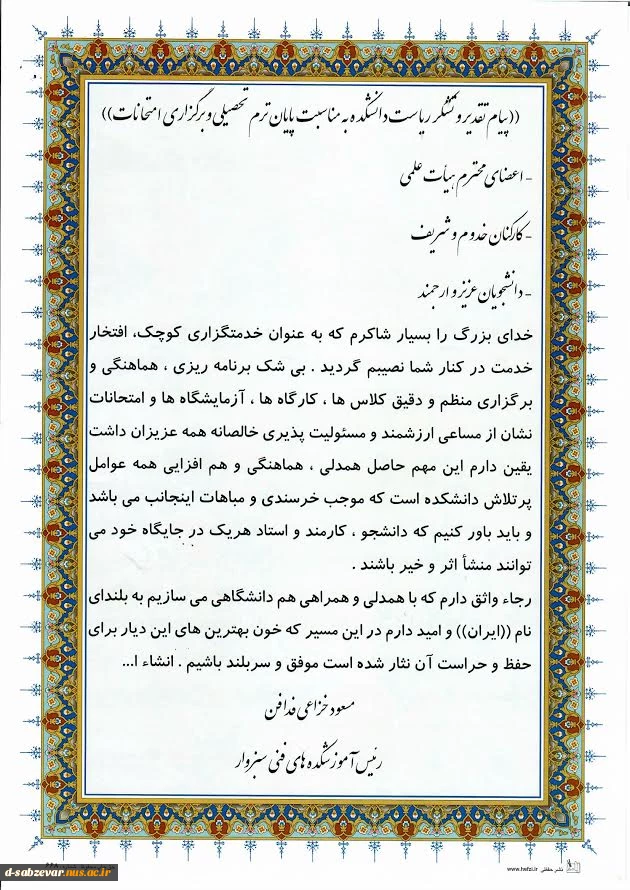 ((پیام تقدیر و تشکر ریاست دانشکده به مناسبت پایان ترم تحصیلی و برگزاری امتحانات))
- اعضای محترم هیأت علمی
- کارکنان خدوم و شریف
- دانشجویان عزیز و ارجمند
خدای بزرگ را بسیار شاکرم که به عنوان خدمتگزاری کوچک، افتخار
خدمت در کنار شما نصیبم گردید . بی شک برنامه ریزی ، هماهنگی و
برگزاری منظم و دقیق کلاس ها ، کارگاه ها ، آزمایشگاه ها و امتحانات
نشان از مساعی ارزشمند و مسئولیت پذیری خالصانه همه عزیزان داشت
یقین دارم این مهم حاصل همدلی ، هماهنگی و هم افزایی همه عوامل
پرتلاش دانشکده است که موجب خرسندی و مباهات اینجانب می باشد
و باید باور کنیم که دانشجو ، کارمند و استاد هریک در جایگاه خود می
توانند منشأ اثر و خیر باشند .
رجاء واثق دارم که با همدلی و همراهی هم دانشگاهی می سازیم به بلندای
نام ((ایران)) و امید دارم در این مسیر که خون بهترین های این دیار برای
حفظ و حراست آن نثار شده است موفق و سربلند باشیم . انشاء ا...
مسعود خزاعی فدافن
رئیس آموزشکده های فنی سبزوار
نشر حفظی www.hefzi.ir
d-sabzevar.nus.ac.ir